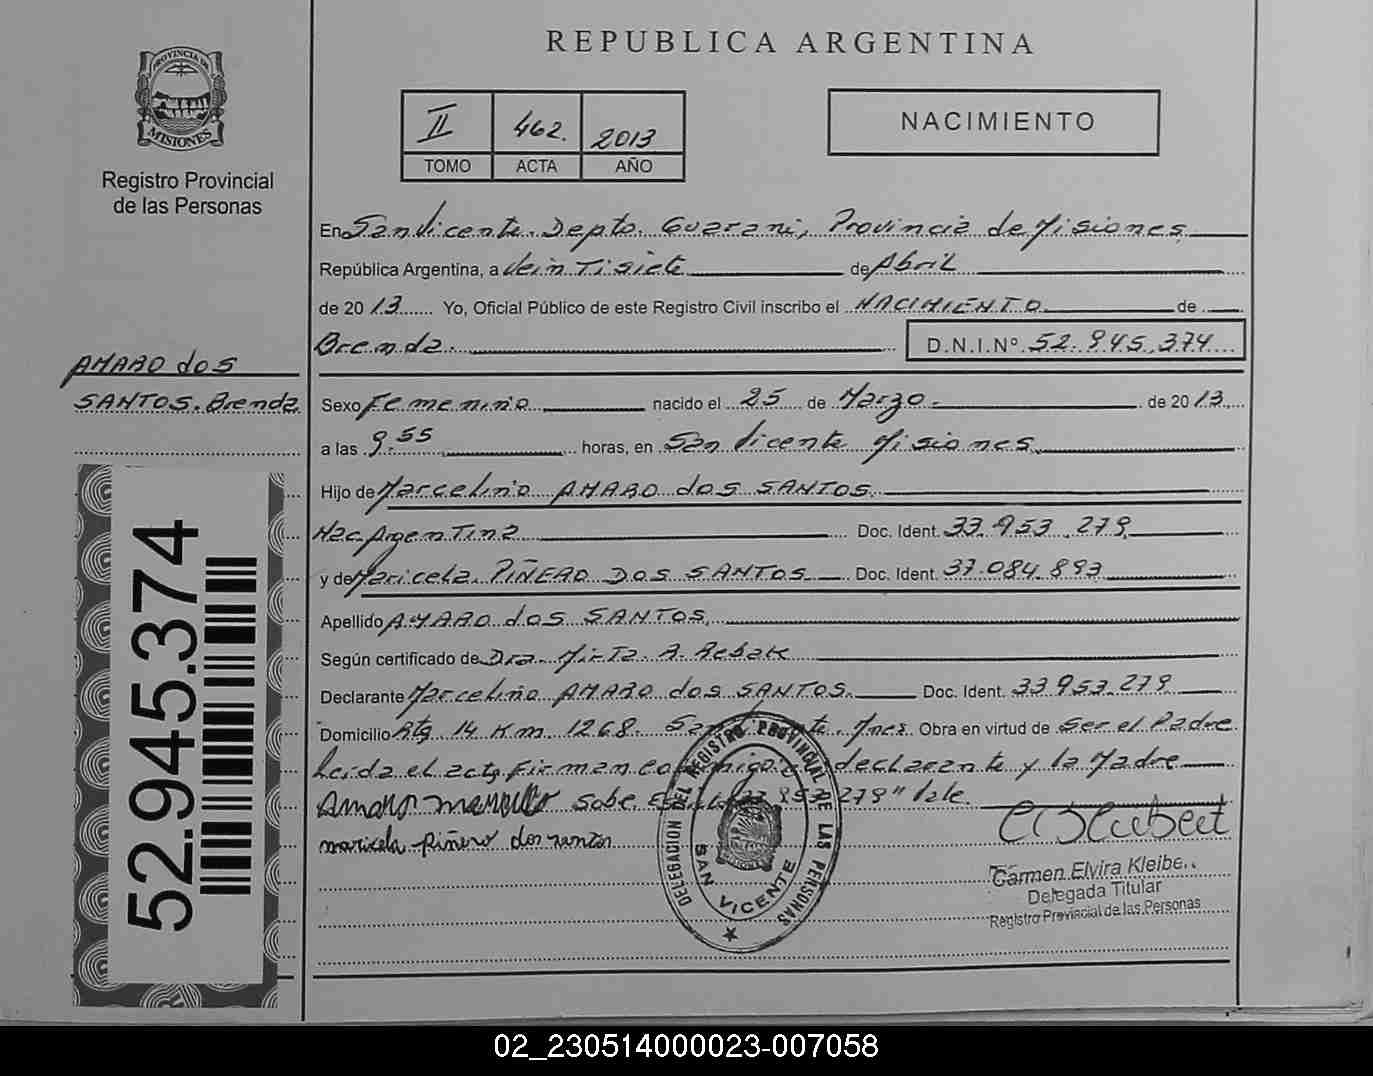 REPUBLICA ARGENTINA
PROVINCIA DE
MISIONES
Registro Provincial
de las Personas
II 462. 2013
TOMO ACTA AÑO
NACIMIENTO
En San Vicente. Depto. Guarani, Provincia de Misiones
República Argentina, a Vein Tisiete de Abril
de 2013 Yo, Oficial Público de este Registro Civil inscribo el NACIMIENTO de
Brenda. D.N.I.Nº 52.945.374
AMARO dos
SANTOS. Brenda
Sexo Femenino nacido el 25 de Marzo. de 2013
a las 9.55 horas, en San Vicente Misiones
Hijo de Marcelino AMARO dos SANTOS
Nac. Argentina Doc. Ident. 33.953.279
y de Maricela PIÑERO DOS SANTOS Doc. Ident. 37.084.893
Apellido AMARO dos SANTOS
Según certificado de Dra. Mirta A. Rebak
Declarante Marcelino AMARO dos SANTOS. Doc. Ident. 33953.279
Domicilio Rta 14 Km 1268. San Vicente. Mnes. Obra en virtud de Ser el Padre
Leida el acta firman conmigo el declarante y la Madre
Amaro Marcelino Sobre 33.953.279" Vale
maricela Piñero dos santos
DELEGACION DEL REGISTRO PROVINCIAL DE LAS PERSONAS
SAN VICENTE
Carmen Elvira Kleibe
Delegada Titular
Registro Provincial de las Personas
52.945.374
02_230514000023-007058